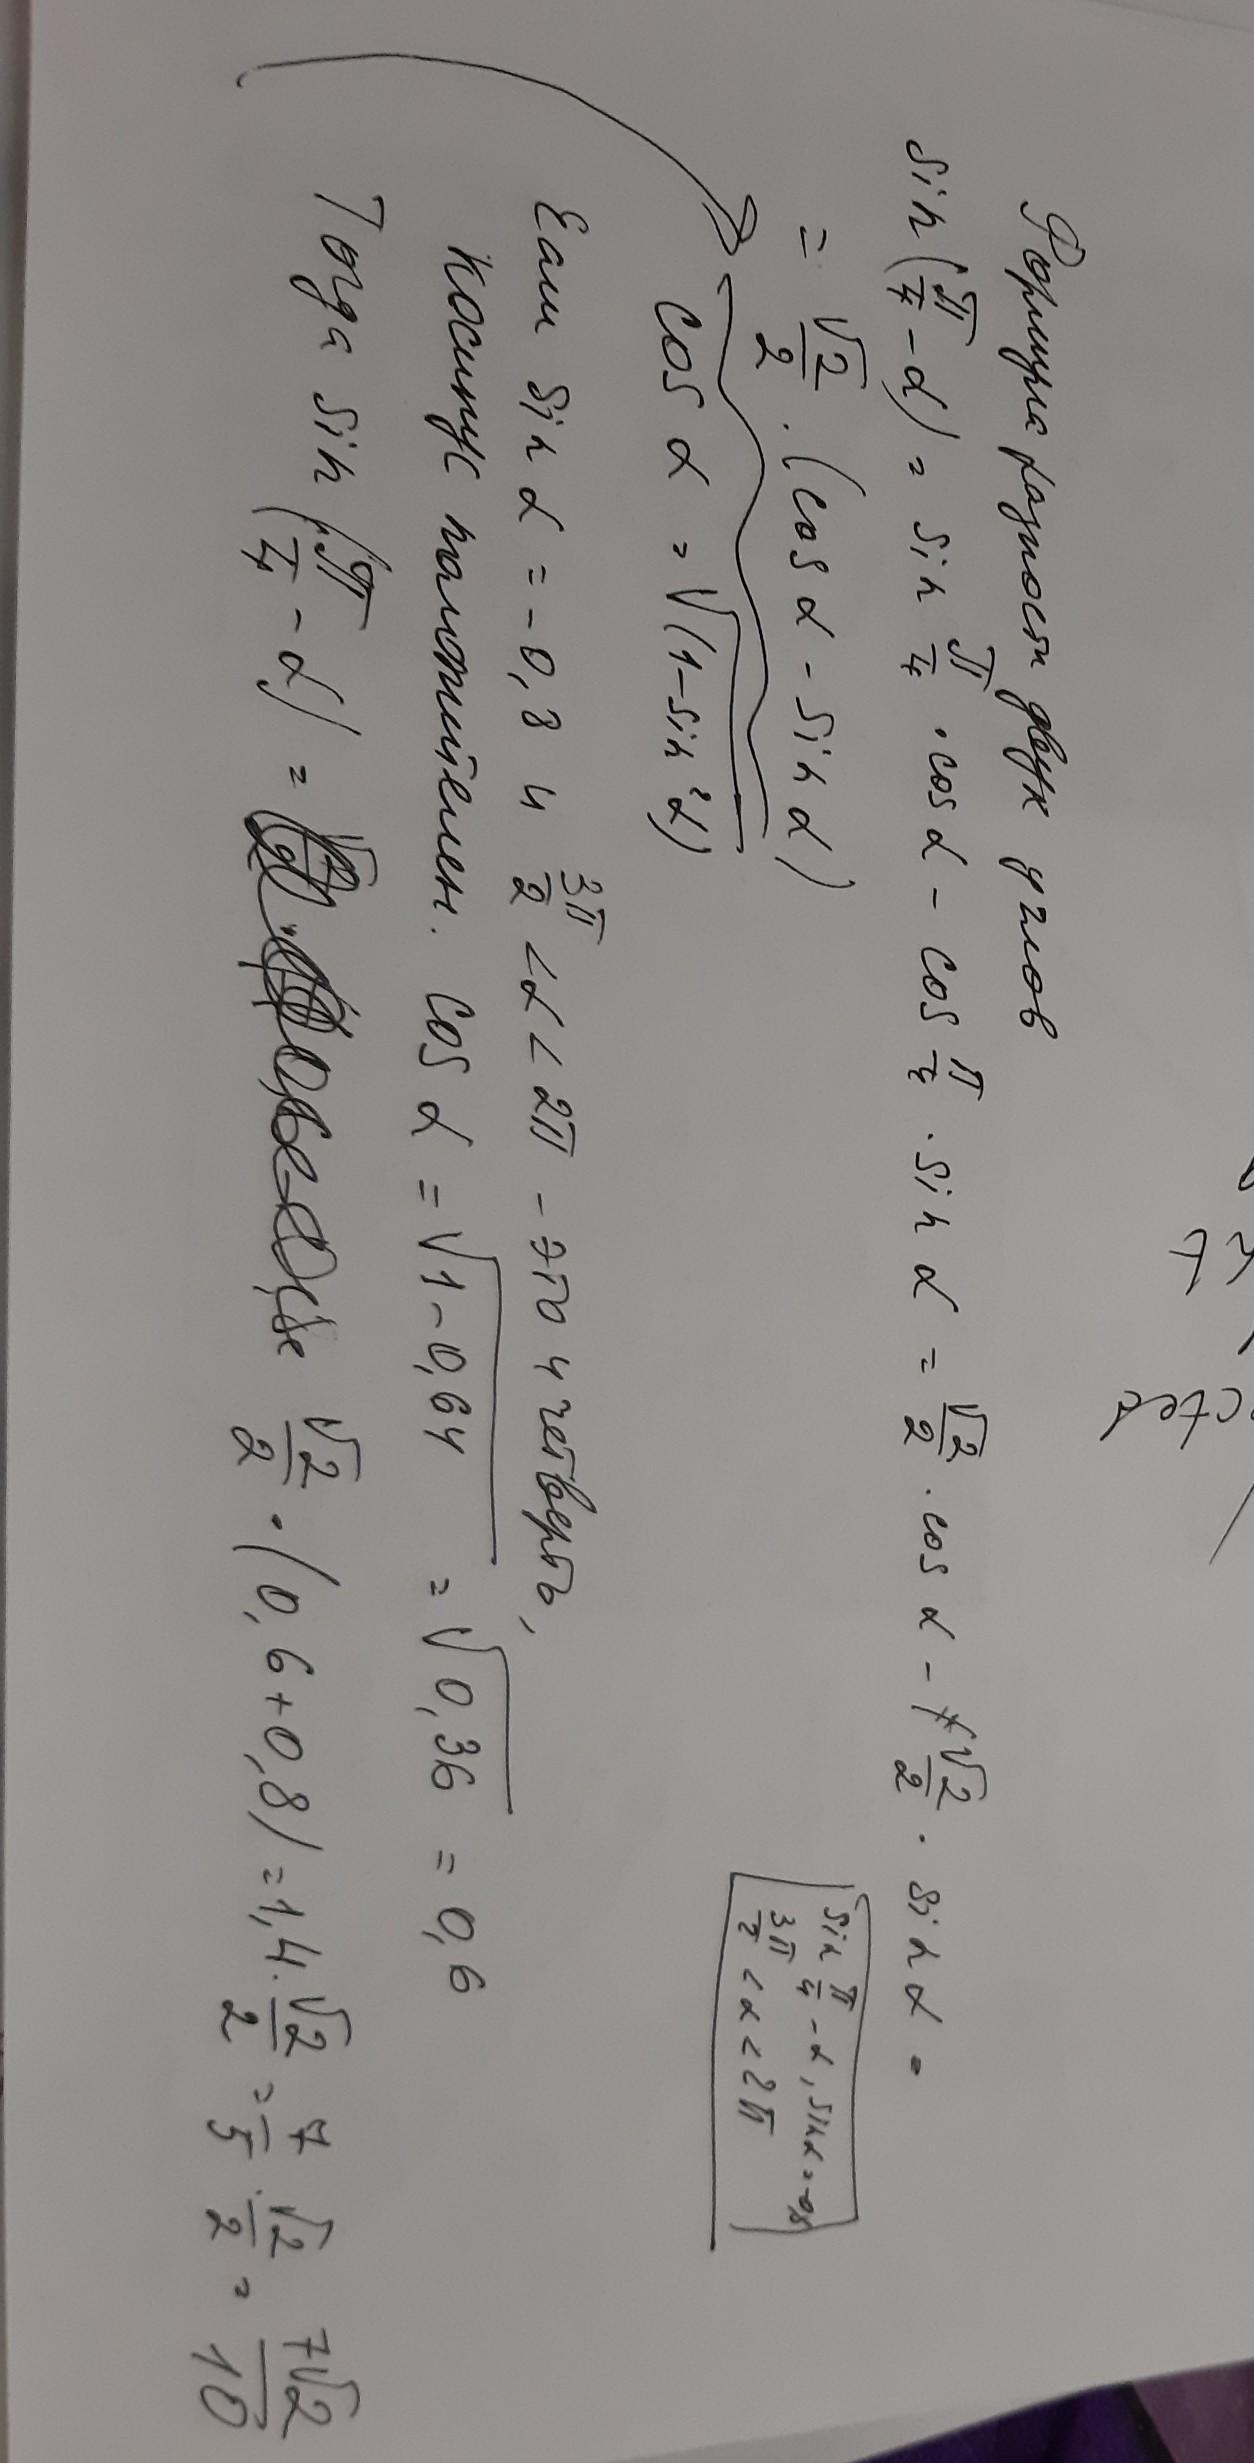 Формула разности двух углов
sin(π/4 - α) = sin π/4 · cos α - cos π/4 · sin α = √2/2 · cos α - √2/2 · sin α =
= √2/2 · (cos α - sin α)
sin π/4 - α, sin α = -0,8
3π/2 < α < 2π
cos α = √(1-sin²α)
Если sin α = -0,8 и 3π/2 < α < 2π - это 4 четверть,
косинус положителен. cos α = √1-0,64 = √0,36 = 0,6
Тогда sin(π/4 - α) = √2/2 · (0,6+0,8) = 1,4 · √2/2 = 7/5 · √2/2 = 7√2/10